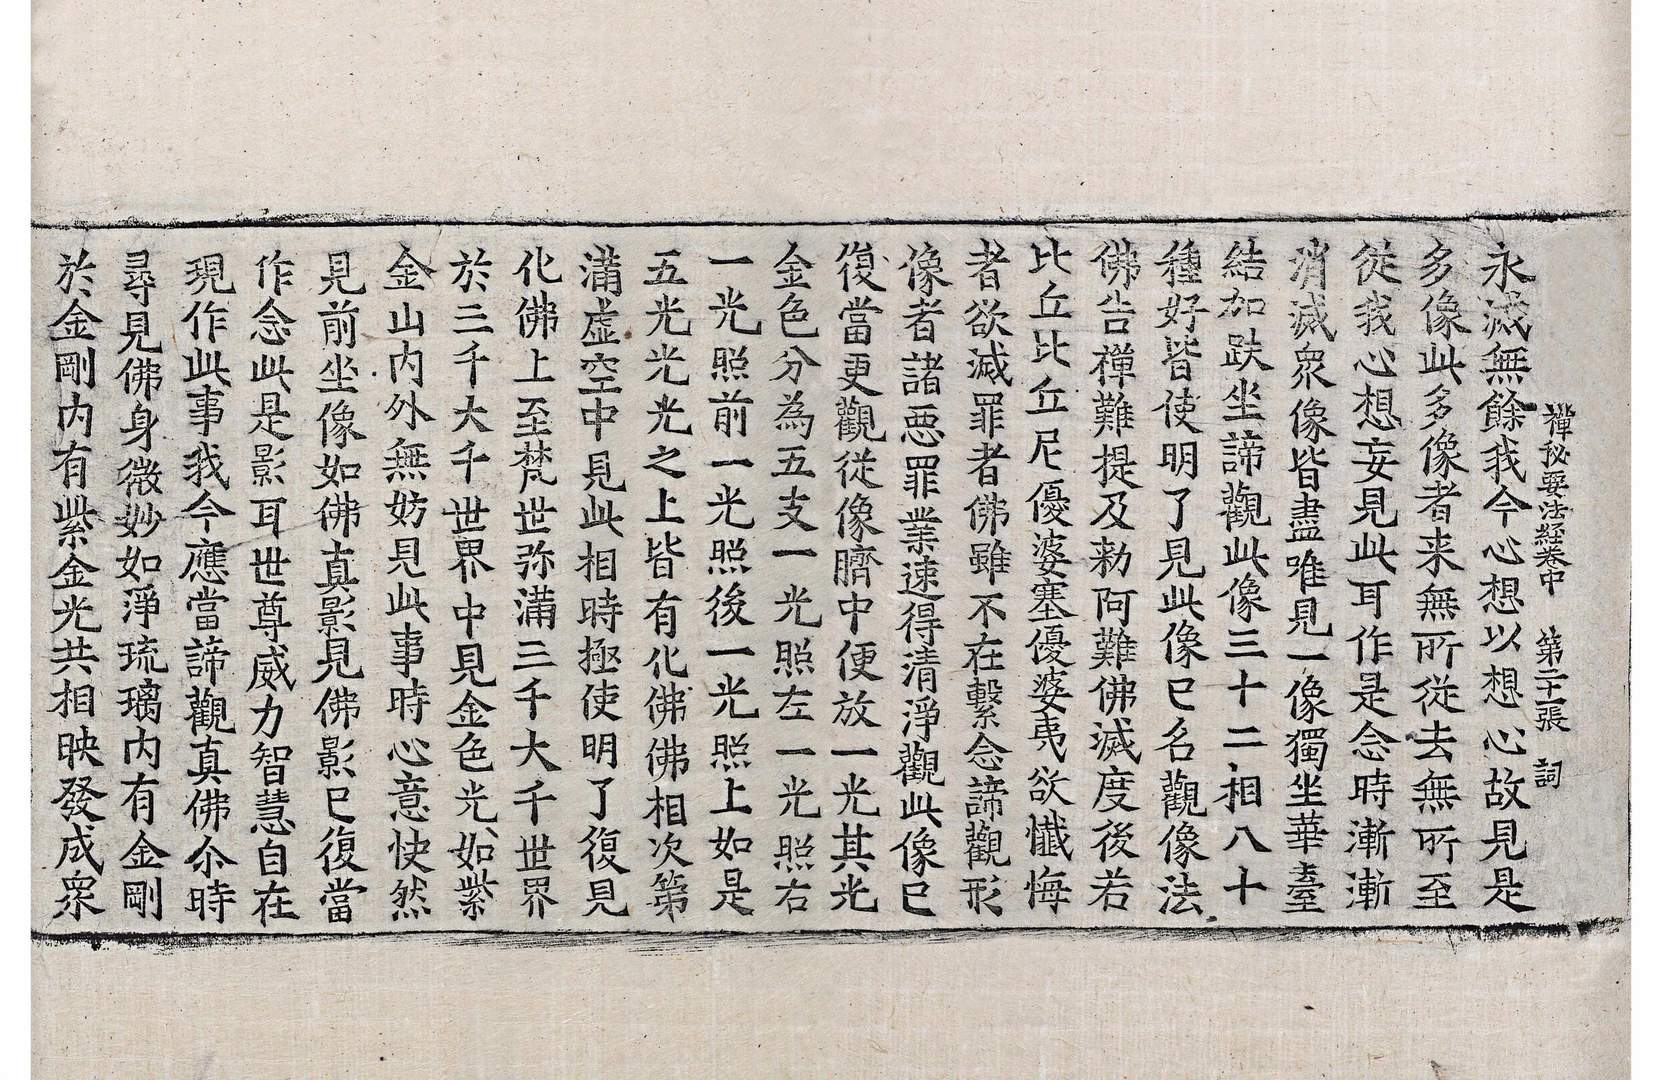 禪秘要法經卷中　第二十一張　詞
永滅無餘我今心想以想心故見是
多像此多像者来無所從去無所至
從我心想妄見此耳作是念時漸漸
消滅衆像皆盡唯見一像獨坐華臺
結加趺坐諦觀此像三十二相八十
種好皆使明了見此像已名觀像法
佛告禪難提及勑阿難佛滅度後若
比丘比丘尼優婆塞優婆夷欲懺悔
者欲滅罪者佛雖不在繫念諦觀形
像者諸惡罪業速得清淨觀此像已
復當更觀從像臍中便放一光其光
金色分為五支一光照左一光照右
一光照前一光照後一光照上如是
五光光光之上皆有化佛佛相次第
滿虛空中見此相時極使明了復見
化佛上至梵世弥滿三千大千世界
於三千大千世界中見金色光如紫
金山内外無妨見此事時心意快然
見前坐像如佛真影見佛影已復當
作念此是影耳世尊威力智慧自在
現作此事我今應當諦觀真佛尒時
尋見佛身微妙如淨琉璃内有金剛
於金剛内有紫金光共相映發成衆